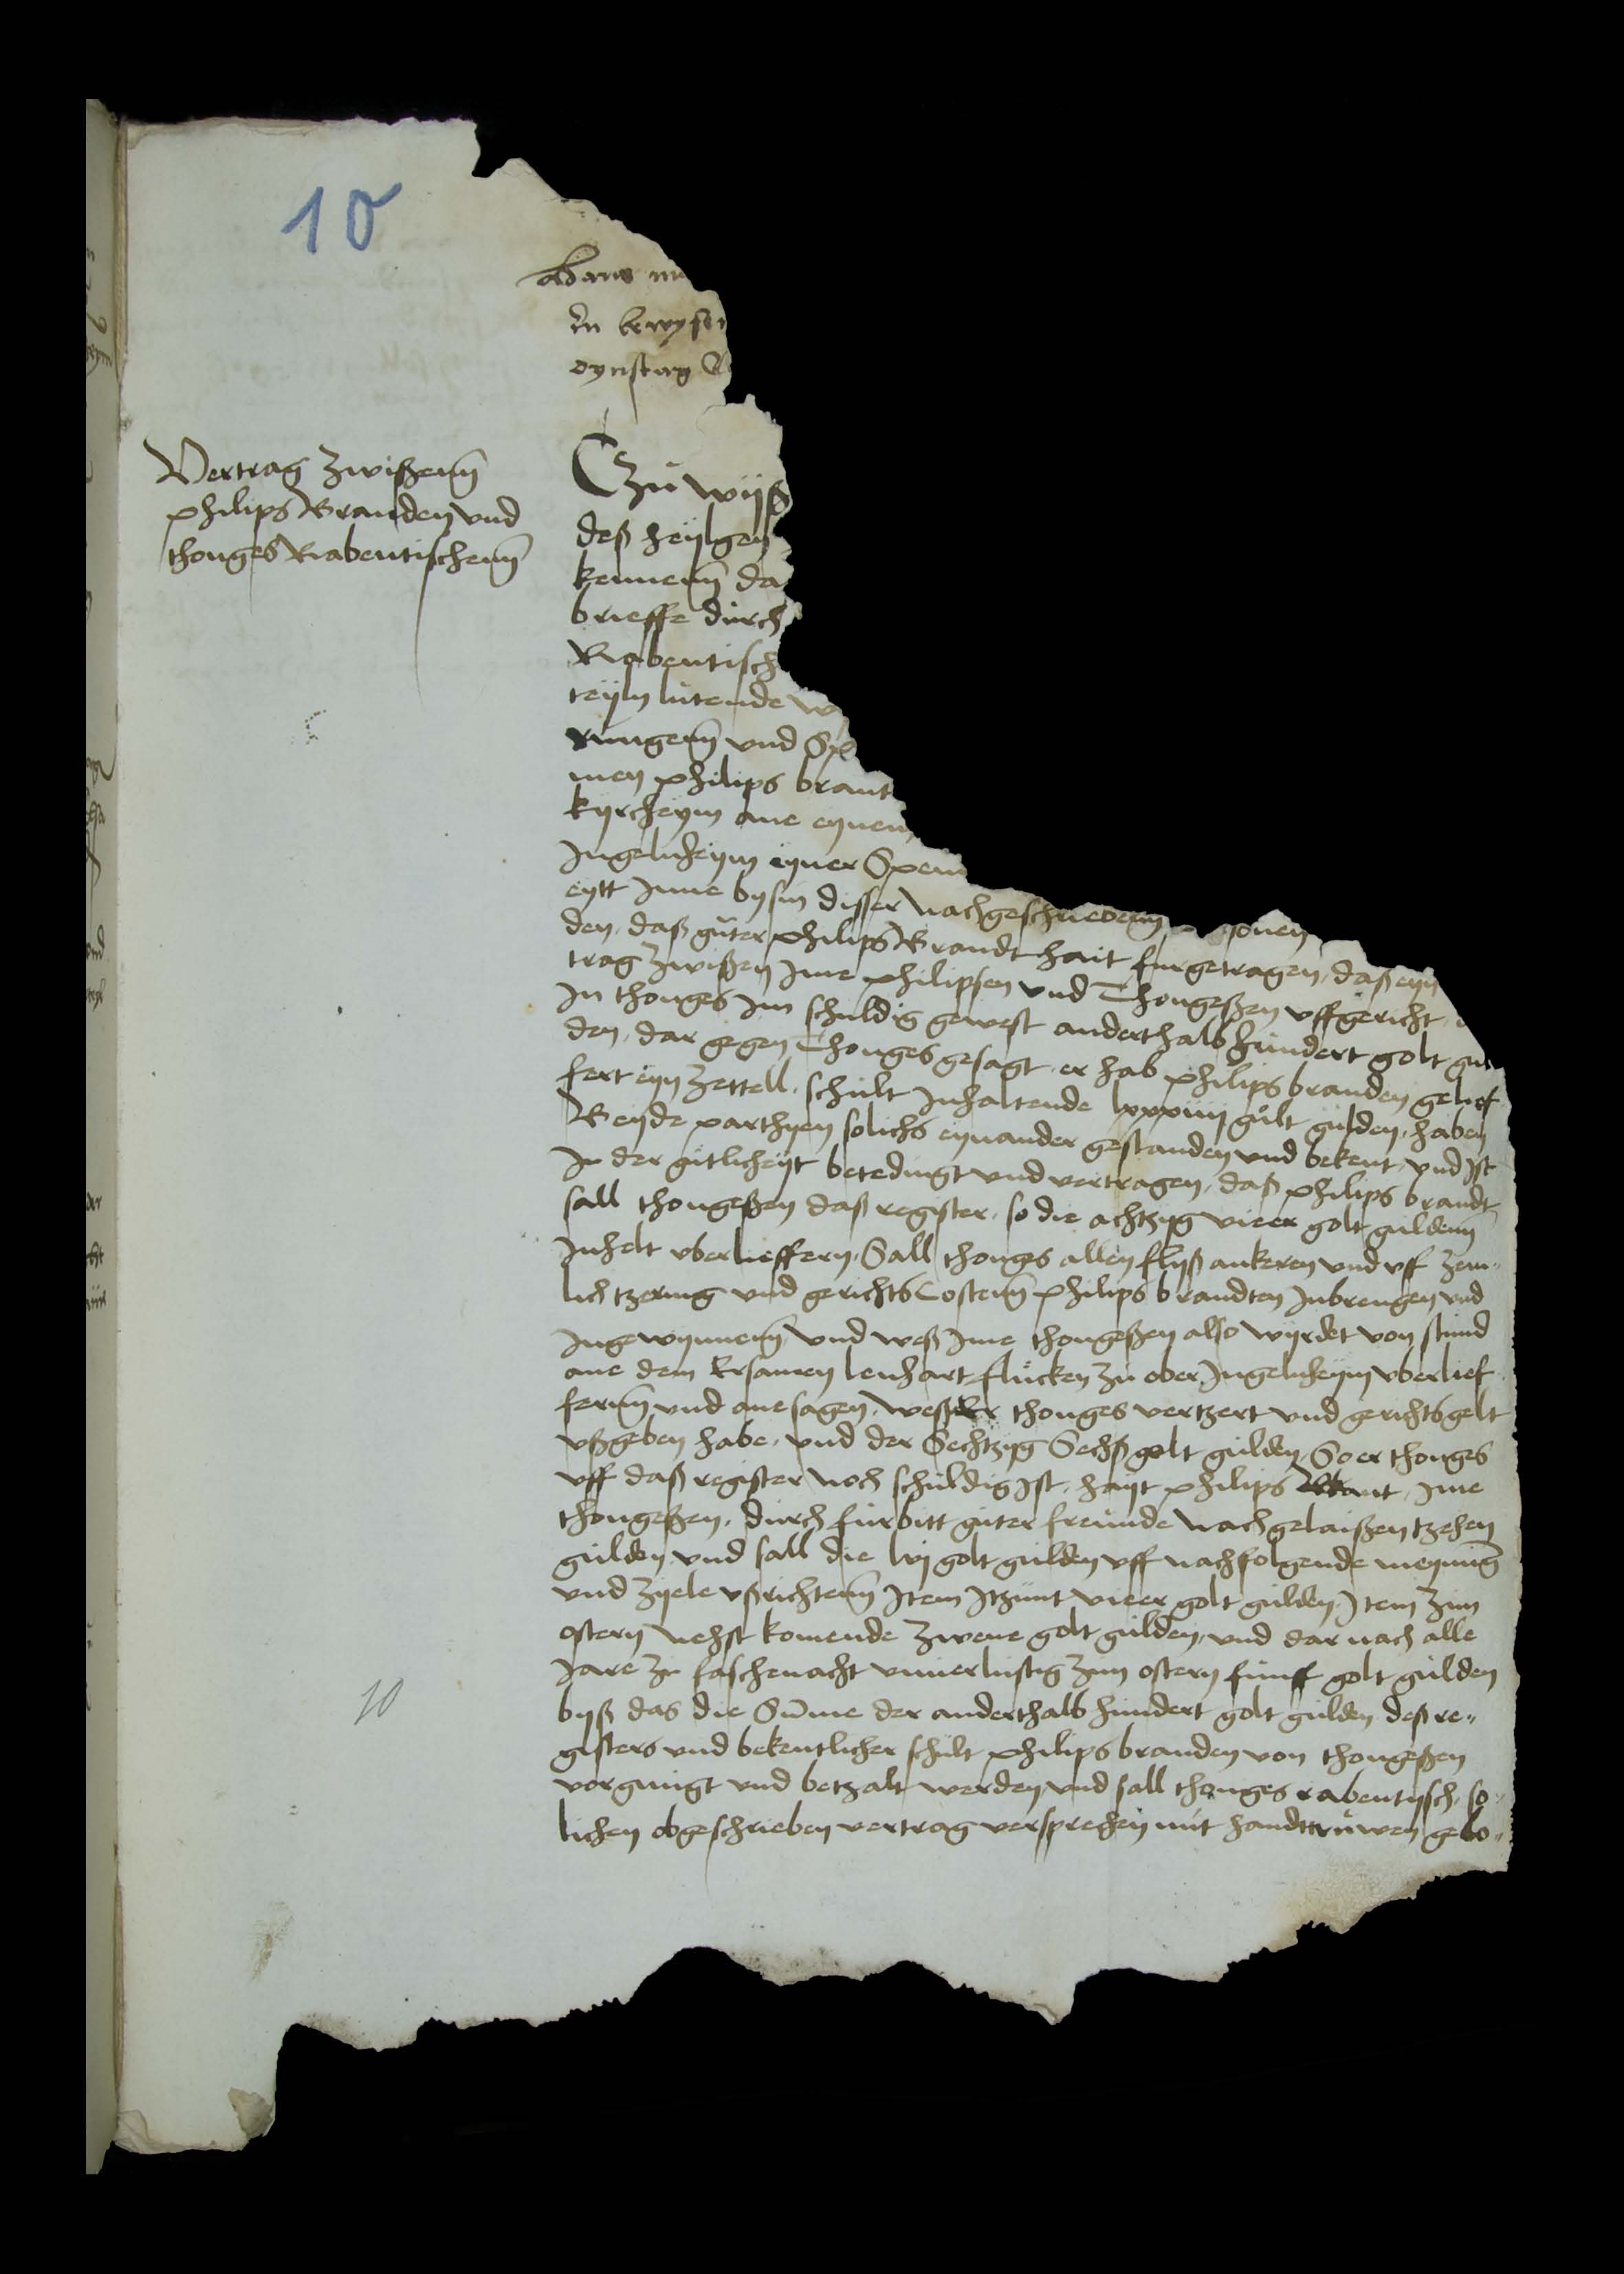 10
Adams
zu bewysen
dynstag
Vertrag zwißenn
philips Branden vnd
thonges Rabentischenn
Czu wyß
deß heyligen
kennenn da
brieffe durch
Rabentisch
teyln lutende
rungenn vnd Sp
men philips brant
kyrcheym ane eynem
Ingelnheym eyner Spenn
eytt Inne bysin disser nachgeschriebenn
den, daß guter philips Brandt hait furgetragen, daß eyn
trag zwißen Ime philipsen vnd Thongeßen vffgericht,
In thonges Im schuldig gewest anderthalb hundert golt gul
den, dar gegen Thonges gesagt, er hab philips branden gelief
fert eyn zettell, schult Inhaltende lxxxiiij gult gulden, haben
Beyde parthyen solichs eynander gestanden vnd bekent, vnd Ist
In der gutlicheyt betedingt vnd vertragen, daß philips brandt
sall thongeßen daß register, so die achtzyg vieer golt guldenn
Inhelt vberlieffern, Sall thonges allen flyß ankeren vnd vff zem„
lich tzerung vnd gerichts Costenn philips brandten Inbrengen vnd
Ingewynnenn vnd weß Ime thongeßen also wyrdet von stund
ane dem Ersamen lenhart flucken zu ober Ingelnheym vberlief
fernn vnd ane sagen, weß Er thonges vertzert vnd gerichts gelt
vßgeben habe, vnd der Sechtzyg Sechß golt gulden So er thonges
vff daß register noch schuldig Ist, hayt philips Brant, Ime
thongeßen, durch furbitt guter freunde nachgelaißen tzehen
gulden, vnd sall die lvj golt gulden vff nachfolgende meynung
vnd zyele vßrichtenn Item Itzunt vieer golt gulden, Item zun
ostern nehst komende zwene golt gulden, vnd dar nach alle
Jare zu faschenacht vnuerlustig zun ostern funff golt gulden
byß das die Summe der anderthalb hundert golt gulden deß re„
10
gisters vnd bekentlicher schult philips branden von thongeßen
vergnugt vnd betzalt werden, vnd sall thonges rabentysch, so„
lichen obgeschrieben vertrag versprechen mit handttruwen gelo„